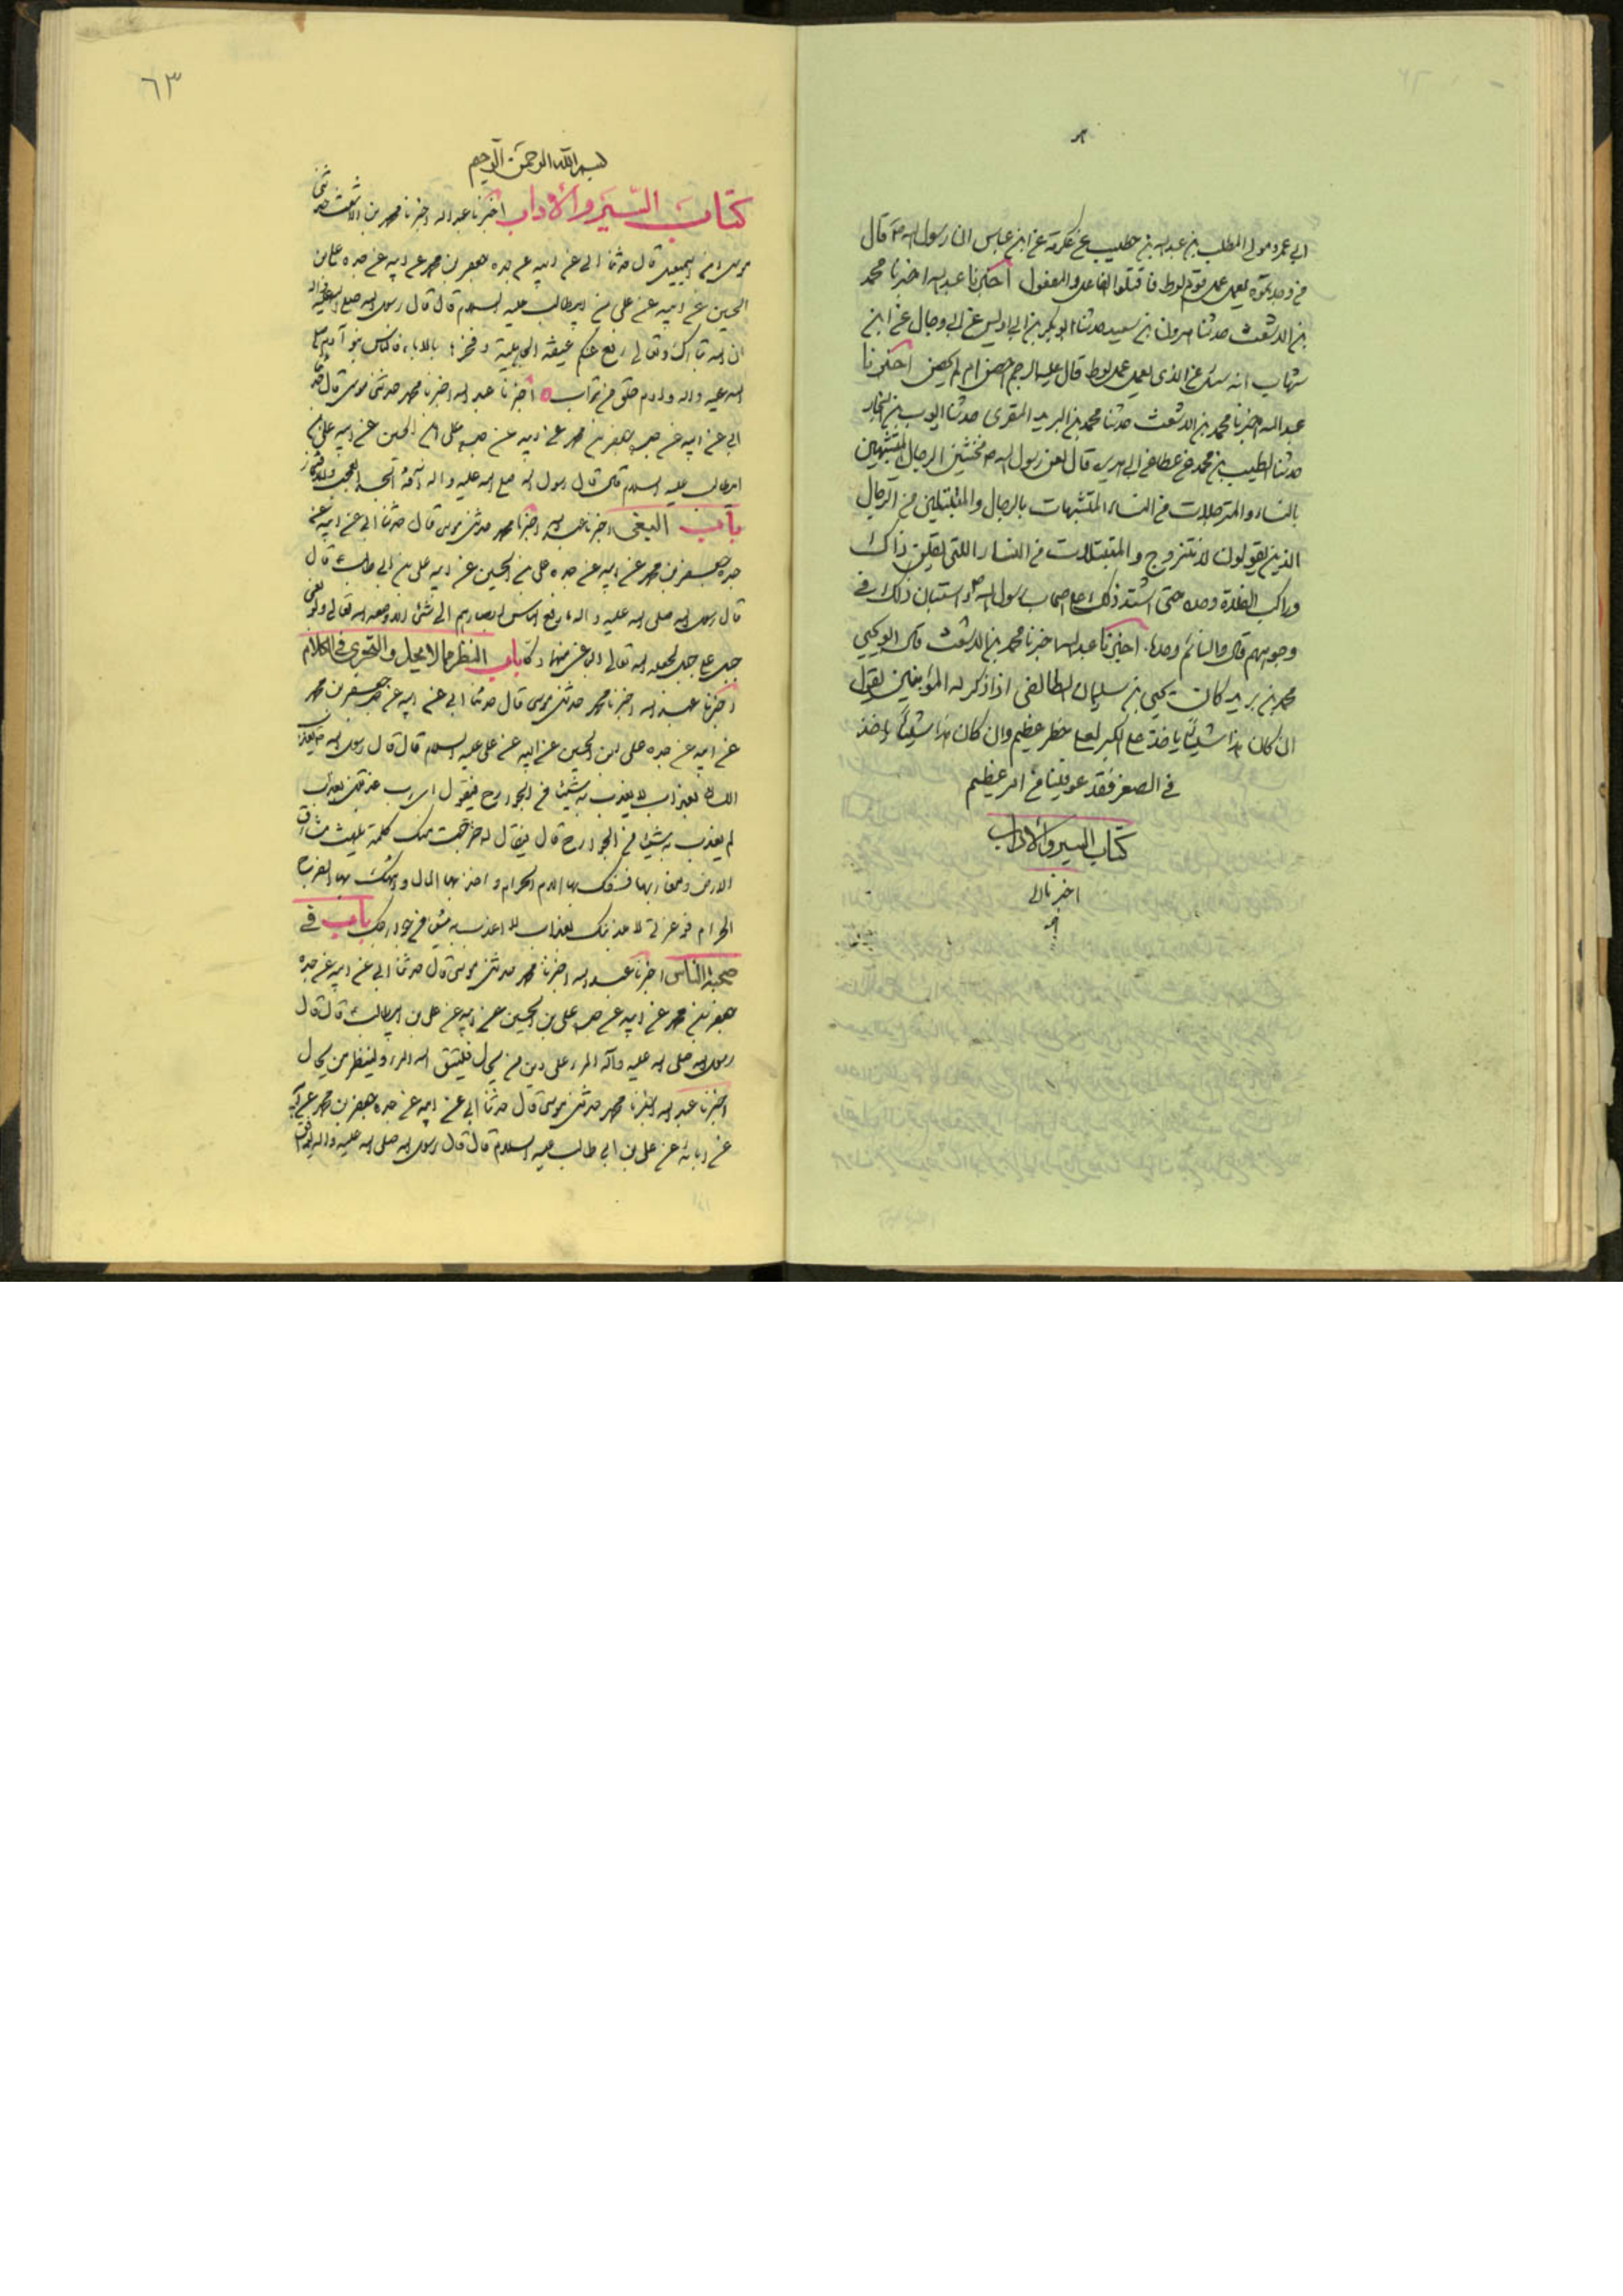 ابي عمرو مولى المطلب بن عبد الله بن حطيب عن عكرمة عن ابن عباس ان رسول الله ص قال
من وجدتموه يعمل عمل قوم لوط فاقتلوا الفاعل والمفعول اخبرنا عبد الله اخبرنا محمد
بن الاشعث حدثنا هرون بن سعيد حدثنا ابو بكر بن ابي اويس عن ابي وجال عن ابن
شهاب انه سئل عن الذي يعمل عمل لوط قال عليه الرجم احصن ام لم يحصن اخبرنا
عبد الله اخبرنا محمد بن الاشعث حدثنا محمد بن البريد المقرى حدثنا ايوب بن النجار
حدثنا الطيب بن محمد عن عطا عن ابي هريره قال لعن رسول الله ص مخنثين الرجال المتشبهين
بالنساء والمترجلات من النساء المتشبهات بالرجال والمتبتلين من الرجال
الذين يقولون لا نتزوج والمتبتلات من النساء اللتي يقلن ذاك
وراكب الفلاة وحده حتى اشتد ذلك على اصحاب رسول الله ص استبان ذلك في
وجوههم قال والنائم وحده اخبرنا عبد الله اخبرنا محمد بن الاشعث قال ابو يحيى
محمد بن يريد كان يحيى بن سليمان الطائفى اذا ذكر له المؤبنين يقول
ان كان هذا شيئاً ياخذ على الكبر لعلى خطر عظيم وان كان هذا شيئاً ياخذ
في الصغر فقد عوفينا من امر عظيم
كتاب السير والاداب
اخبرنا
٦٣
بسم الله الرحمن الرحيم
كتاب السير والاداب اخبرنا عبد الله اخبرنا محمد بن الاشعث حدثنى
موسى بن اسمعيل قال حدثنا ابي عن ابيه عن جده جعفر بن محمد عن ابيه عن جده على بن
الحسين عن ابيه عن على بن ابيطالب عليه السلام قال قال رسول الله صلى الله عليه واله
ان الله تبارك وتعالى رفع عنكم عيبة الجاهلية وفخرها بالاباء فالناس بنو آدم
عليه واله وادم خلق من تراب اخبرنا عبد الله اخبرنا محمد حدثنى موسى قال حدثنا
ابي عن ابيه عن جده جعفر بن محمد عن ابيه عن جده على بن الحسين عن ابيه على بن
ابيطالب عليه السلام قال قال رسول الله صلى الله عليه واله آفة الحسب العجب والافتخار
باب البغى اخبرنا عبد الله اخبرنا محمد حدثنى موسى قال حدثنا ابي عن ابيه عن
جده جعفر بن محمد عن ابيه عن جده على بن الحسين عن ابيه على بن ابي طالب ع قال
قال رسول الله صلى الله عليه واله ما رفع الناس ابصارهم الى شئ الا وضعه الله تعالى ولو بغى
جبل على جبل لجعل الله تعالى الباغى منهما دكا باب النظر مما لا يحل والتحوى في الكلام
اخبرنا عبد الله اخبرنا محمد حدثنى موسى قال حدثنا ابي عن ابيه عن جده جعفر بن محمد
عن ابيه عن جده على بن الحسين عن ابيه عن على عليه السلام قال قال رسول الله ص يعذب
اللسان بعذاب لا يعذب به شيئا من الجوارح فيقول اى رب عذبتنى بعذاب
لم يعذب به شيئا من الجوارح قال فيقال له خرجت منك كلمة بلغت مشارق
الارض ومغاربها فسفك بها الدم الحرام واخذ بها المال وانتهك بها الفرج
الحرام فوعزتى لاعذبنك بعذاب لا اعذب به شئ من جوارحك باب في
صحبة الناس اخبرنا عبد الله اخبرنا محمد حدثنى موسى قال حدثنا ابي عن ابيه عن جده
جعفر بن محمد عن ابيه عن جده على بن الحسين عن ابيه عن على بن ابيطالب ع قال قال
رسول الله صلى الله عليه وآله المرء على دين من يخال فليتق الله المرء ولينظر من يخال
اخبرنا عبد الله اخبرنا محمد حدثنى موسى قال حدثنا ابي عن ابيه عن جده جعفر بن محمد عن ابيه
عن ابائه عن على بن ابي طالب عليه السلام قال قال رسول الله صلى الله عليه واله